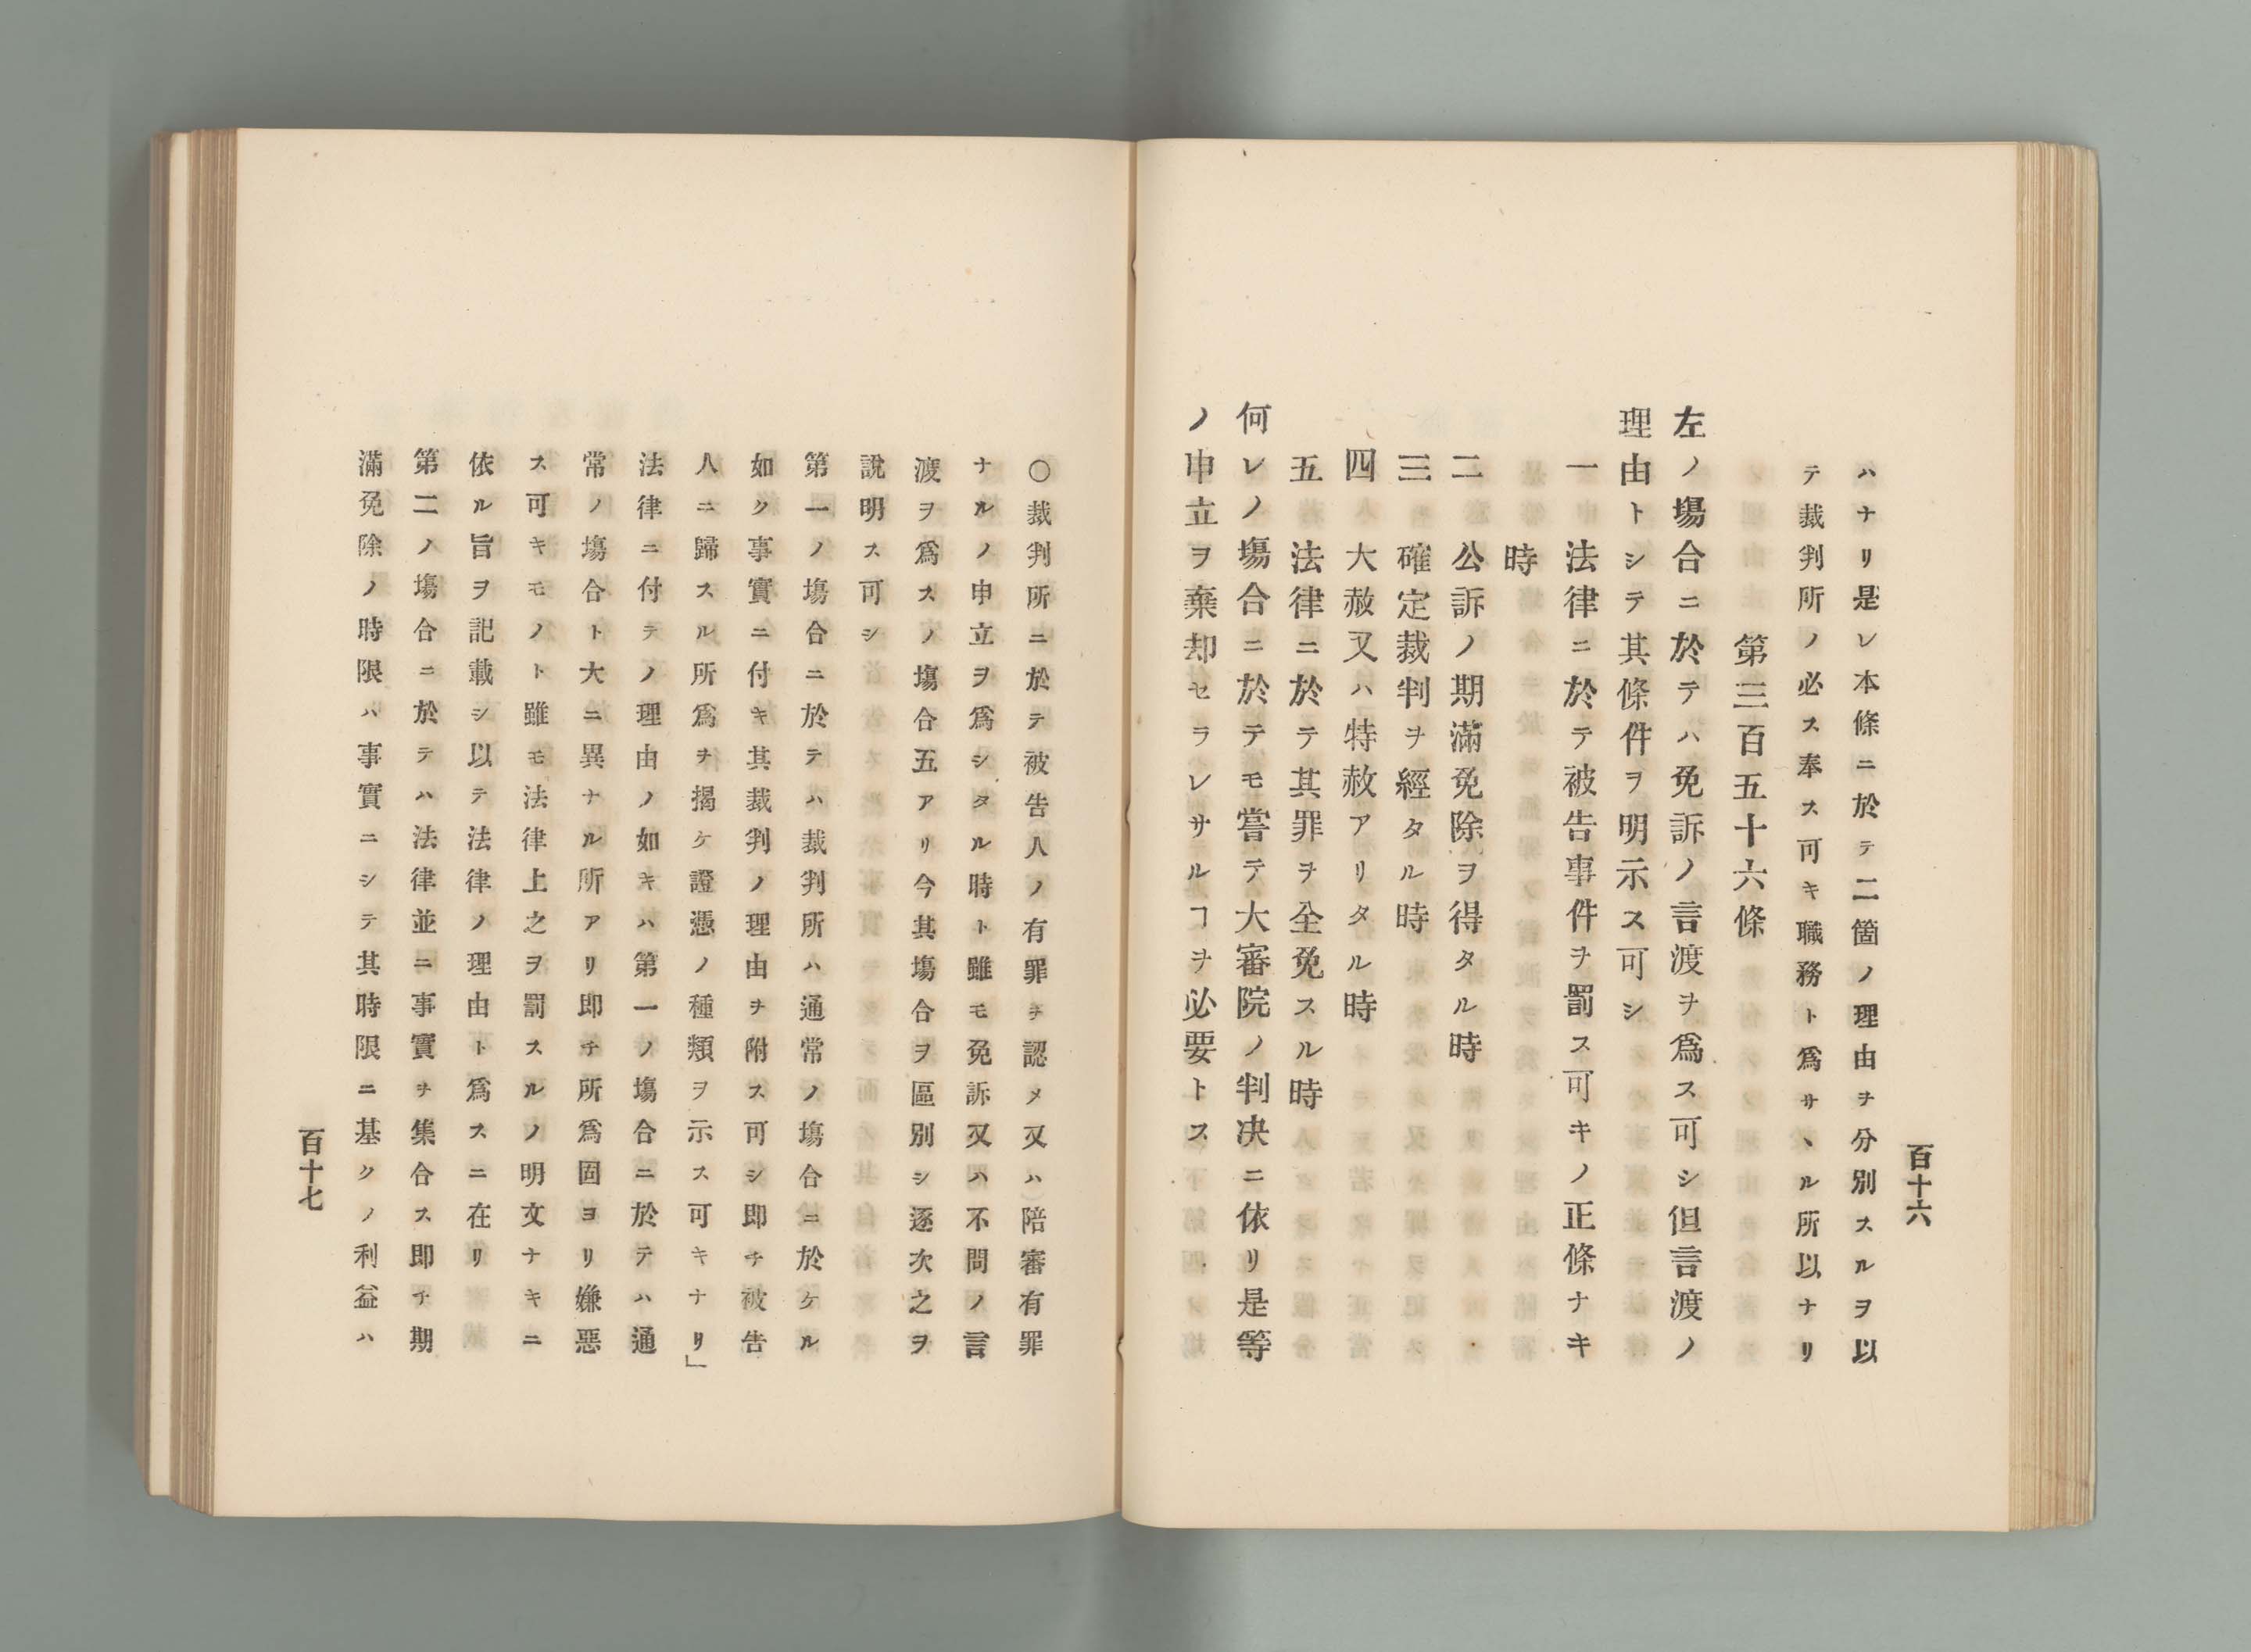 百十六
ハナリ是レ本條ニ於テ二箇ノ理由ヲ分別スルヲ以
テ裁判所ノ必ス奉ス可キ職務ト爲サヽル所以ナリ
第三百五十六條
左ノ塲合ニ於テハ免訴ノ言渡ヲ爲ス可シ但言渡ノ
理由トシテ其條件ヲ明示ス可シ
一 法律ニ於テ被告事件ヲ罰ス可キノ正條ナキ
時
二 公訴ノ期滿免除ヲ得タル時
三 確定裁判ヲ經タル時
四 大赦又ハ特赦アリタル時
五 法律ニ於テ其罪ヲ全免スル時
何レノ塲合ニ於テモ嘗テ大審院ノ判決ニ依リ是等
ノ申立ヲ棄却セラレサルヿヲ必要トス
○裁判所ニ於テ被告(人ノ有罪ヲ認メ又ハ)陪審有罪
ナルノ申立ヲ爲シタル時ト雖モ免訴又ハ不問ノ言
渡ヲ爲スノ塲合五アリ今其塲合ヲ區別シ逐次之ヲ
說明ス可シ
第一ノ塲合ニ於テハ裁判所ハ通常ノ塲合ニ於ケル
如ク事實ニ付キ其裁判ノ理由ヲ附ス可シ即チ被告
人ニ歸スル所爲ヲ揭ケ證憑ノ種類ヲ示ス可キナリ」
法律ニ付テノ理由ノ如キハ第一ノ塲合ニ於テハ通
常ノ塲合ト大ニ異ナル所アリ即チ所爲固ヨリ嫌惡
ス可キモノト雖モ法律上之ヲ罰スルノ明文ナキニ
依ル旨ヲ記載シ以テ法律ノ理由ト爲スニ在リ
第二ノ塲合ニ於テハ法律並ニ事實ヲ集合ス即チ期
滿免除ノ時限ハ事實ニシテ其時限ニ基クノ利益ハ
百十七